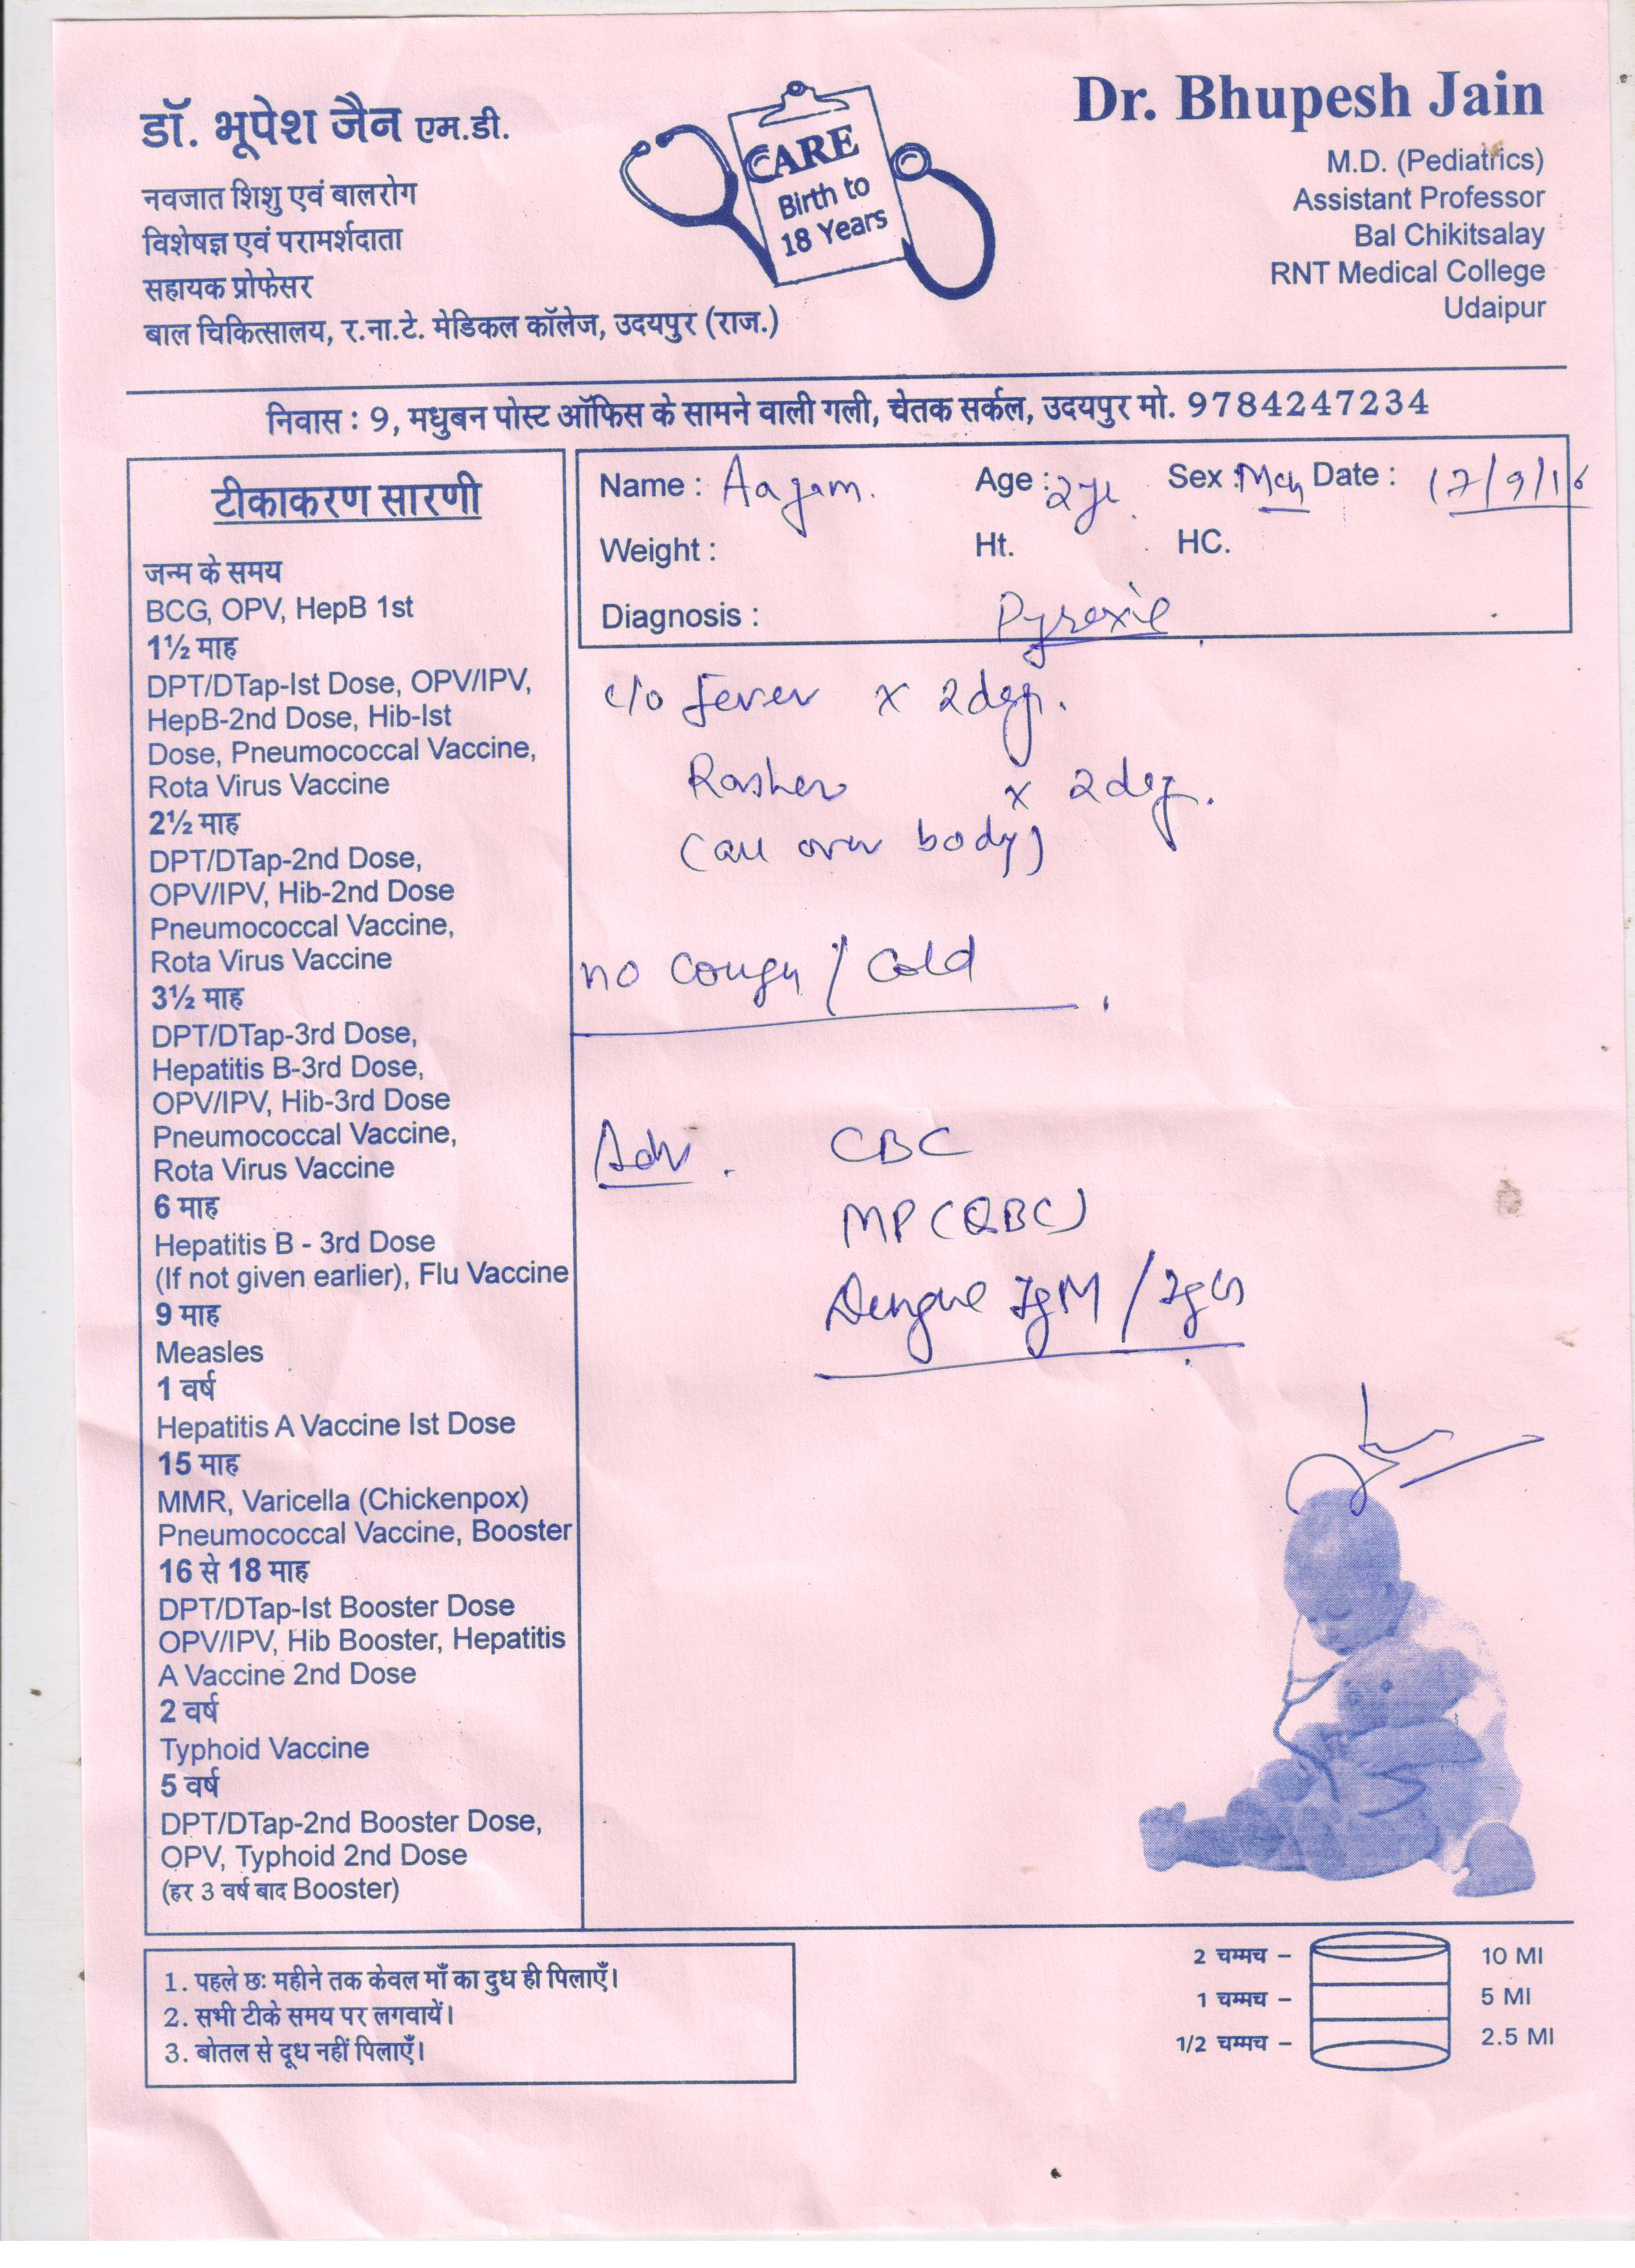 डॉ. भूपेश जैन एम.डी.
नवजात शिशु एवं बालरोग
विशेषज्ञ एवं परामर्शदाता
सहायक प्रोफेसर
बाल चिकित्सालय, र.ना.टे. मेडिकल कॉलेज, उदयपुर (राज.)
CARE
Birth to
18 Years
Dr. Bhupesh Jain
M.D. (Pediatrics)
Assistant Professor
Bal Chikitsalay
RNT Medical College
Udaipur
निवास : 9, मधुबन पोस्ट ऑफिस के सामने वाली गली, चेतक सर्कल, उदयपुर मो. 9784247234
टीकाकरण सारणी
जन्म के समय
BCG, OPV, HepB 1st
1½ माह
DPT/DTap-Ist Dose, OPV/IPV,
HepB-2nd Dose, Hib-Ist
Dose, Pneumococcal Vaccine,
Rota Virus Vaccine
2½ माह
DPT/DTap-2nd Dose,
OPV/IPV, Hib-2nd Dose
Pneumococcal Vaccine,
Rota Virus Vaccine
3½ माह
DPT/DTap-3rd Dose,
Hepatitis B-3rd Dose,
OPV/IPV, Hib-3rd Dose
Pneumococcal Vaccine,
Rota Virus Vaccine
6 माह
Hepatitis B - 3rd Dose
(If not given earlier), Flu Vaccine
9 माह
Measles
1 वर्ष
Hepatitis A Vaccine Ist Dose
15 माह
MMR, Varicella (Chickenpox)
Pneumococcal Vaccine, Booster
16 से 18 माह
DPT/DTap-Ist Booster Dose
OPV/IPV, Hib Booster, Hepatitis
A Vaccine 2nd Dose
2 वर्ष
Typhoid Vaccine
5 वर्ष
DPT/DTap-2nd Booster Dose,
OPV, Typhoid 2nd Dose
(हर 3 वर्ष बाद Booster)
Name : Aagam. Age : 2yr Sex : Mch Date : 17/9/16
Weight : Ht. HC.
Diagnosis : Pyrexia
c/o fever x 2 day.
Rashes x 2 day.
(all over body)
no cough / cold
Adv. CBC
MP (QBC)
Dengue IgM / IgG
1. पहले छः महीने तक केवल माँ का दुध ही पिलाएँ।
2. सभी टीके समय पर लगवायें।
3. बोतल से दूध नहीं पिलाएँ।
2 चम्मच – 10 Ml
1 चम्मच – 5 Ml
1/2 चम्मच – 2.5 Ml